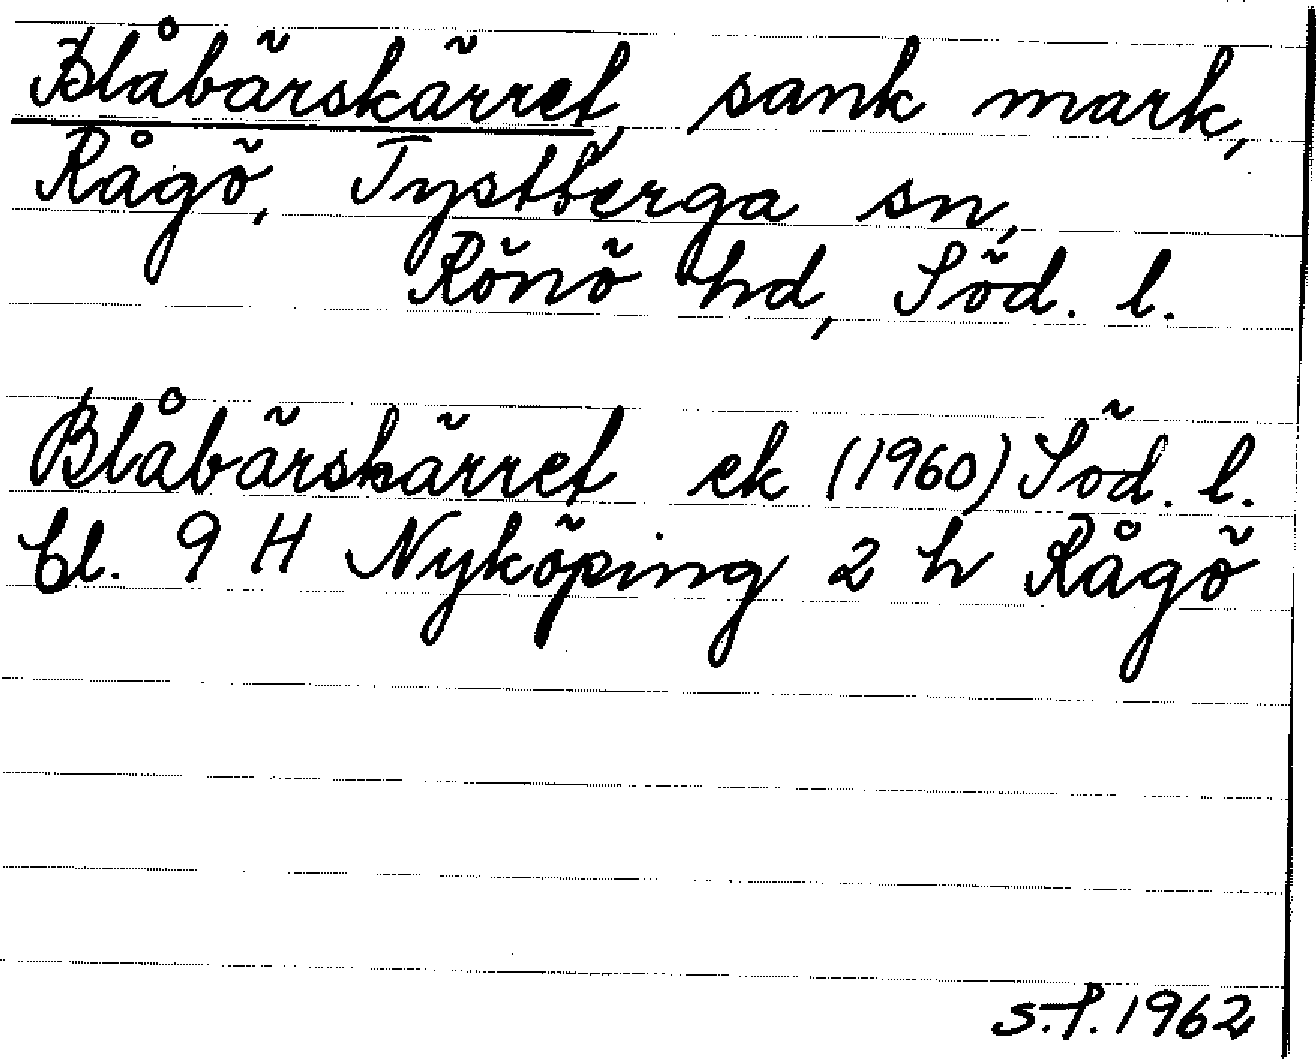 Blåbärskärret, sank mark,
Rågö, Tystberga sn,
Rönö hd, Söd. l.
Blåbärskärret ek (1960) Söd. l.
bl. 9 H Nyköping 2 h Rågö
S.P. 1962